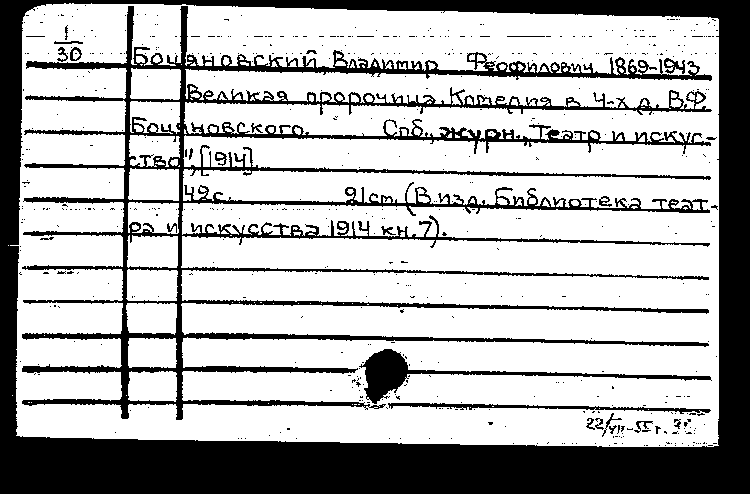 1
30
Боцяновский, Владимир Феофилович, 1869-1943
Великая пророчица. Комедия в 4-х д. В.Ф.
Боцяновского. Спб., журн. „Театр и искус-
ство", [1914].
42с. 21 cm. (В изд. Библиотека теат-
ра и искусства 1914 кн. 7).
22/VII-55 г.